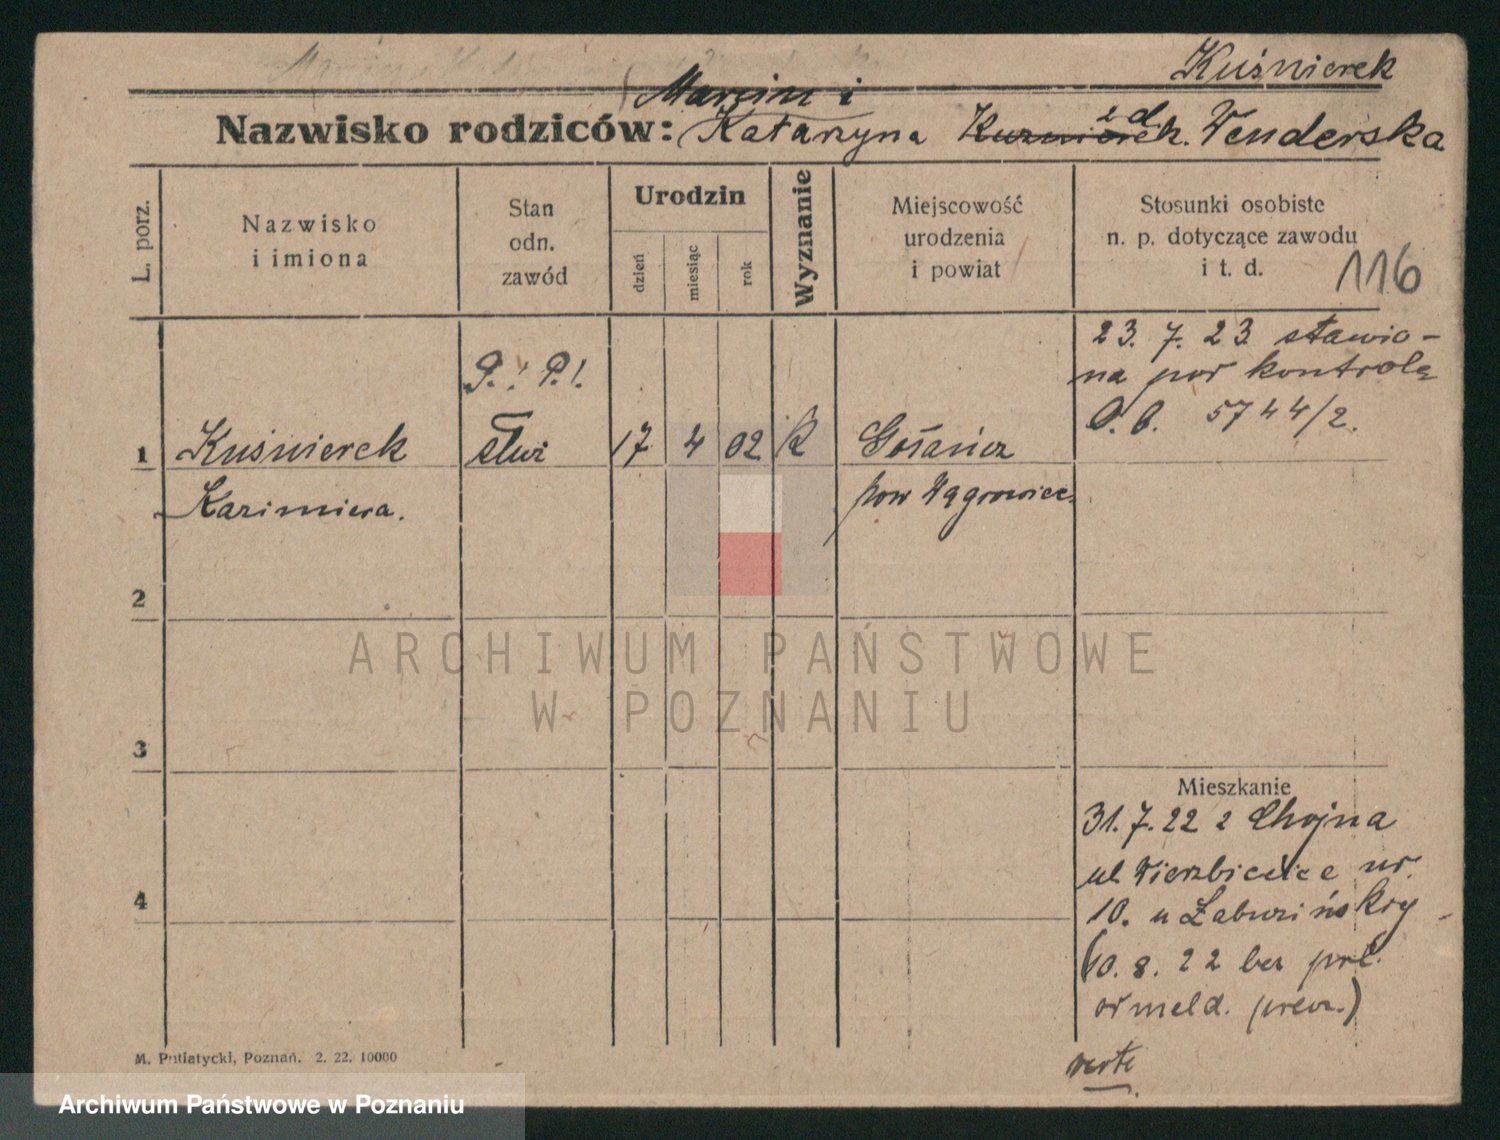 Kuśnierek
Marcin i
Nazwisko rodziców: Katarzyna z d. Wenderska
L. porz.
Nazwisko
i imiona
Stan
odn.
zawód
Urodzin
dzień
miesiąc
rok
Wyznanie
Miejscowość
urodzenia
i powiat
Stosunki osobiste
n. p. dotyczące zawodu
i t. d.
116
23. 7. 23 stawio-
na pod kontrolę
O. b. 5744/2.
P. ! P. !
1 Kuśnierek służ 17 4 02 k Gołańcz
Kazimiera. pow Wągrowiec
2
3
4
Mieszkanie
31. 7. 22 z Chojna
ul Wierzbięcice nr.
10. u
(10. 8. 22 bez
odmeld. )
verte
M. Putiatycki, Poznań. 2. 22. 10000
ARCHIWUM PAŃSTWOWE
W POZNANIU
Archiwum Państwowe w Poznaniu